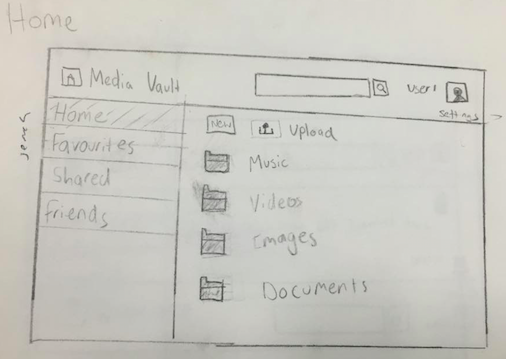 Home
Media Vault
User1
Settings
Home
Favourites
Shared
Friends
New
Upload
Music
Videos
Images
Documents